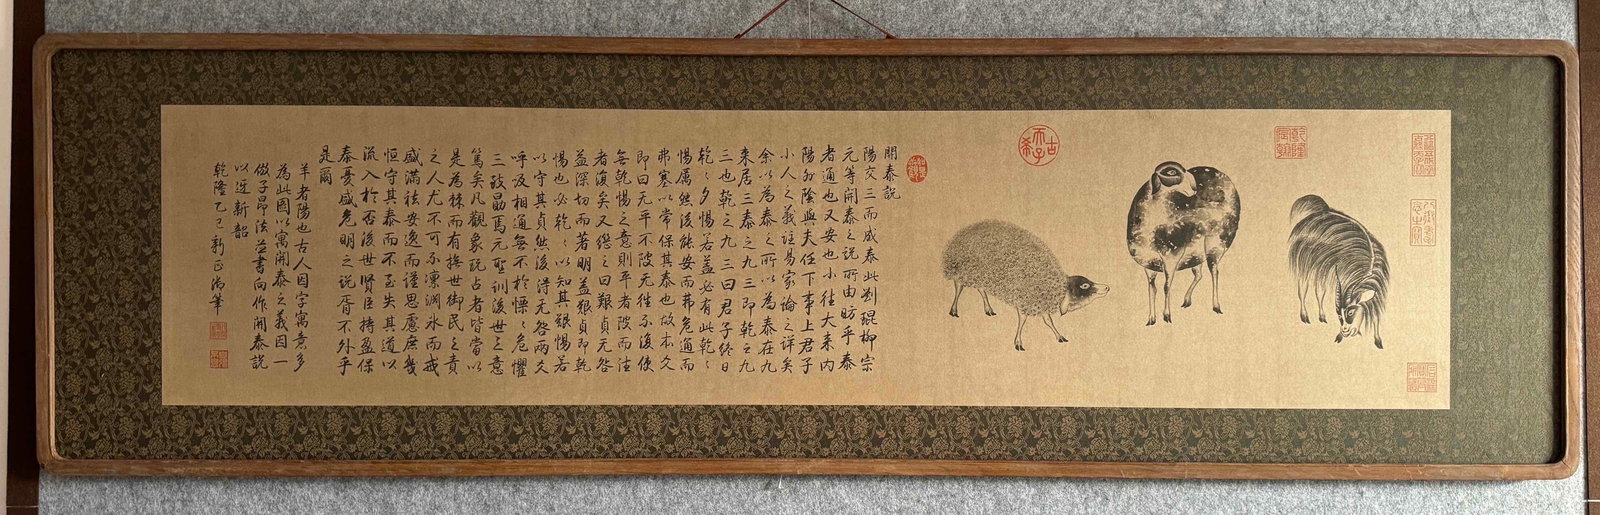 古希天子
乾隆宸翰
開泰說
陽交三而成泰此劉琨柳宗
元等開泰之說所由昉乎泰
者通也又安也小往大來內
陽外陰與夫任下事上君子
小人之義註易家論之詳矣
余以為泰之所以為泰在九
來居三泰之九三即乾之九
三也乾之九三曰君子終日
乾〻夕惕若蓋必有此乾〻
惕厲然後能安而弗危通而
弗塞以常保其泰也故本爻
即曰无平不陂无往不復使
無乾惕之意則平者陂而往
者復矣又繼之曰艱貞无咎
益深切而著明蓋艱貞即乾
惕也必乾〻以知其艱惕若
以守其貞然後得无咎兩爻
呼吸相通無不於慄〻危懼
三致勗焉元聖訓後世之意
篤矣凡觀象玩占者皆當以
是為棘而有撫世御民之責
之人尤不可不凜淵冰而戒
盛滿祛安逸而謹思慮庶幾
恒守其泰而不至失其道以
流入於否後世賢臣持盈保
泰憂盛危明之說胥不外乎
是爾
羊者陽也古人因字寓意多
為此圖以寓開泰之義因一
倣子昂法並書向作開泰說
以迓新韶
乾隆乙巳新正御筆